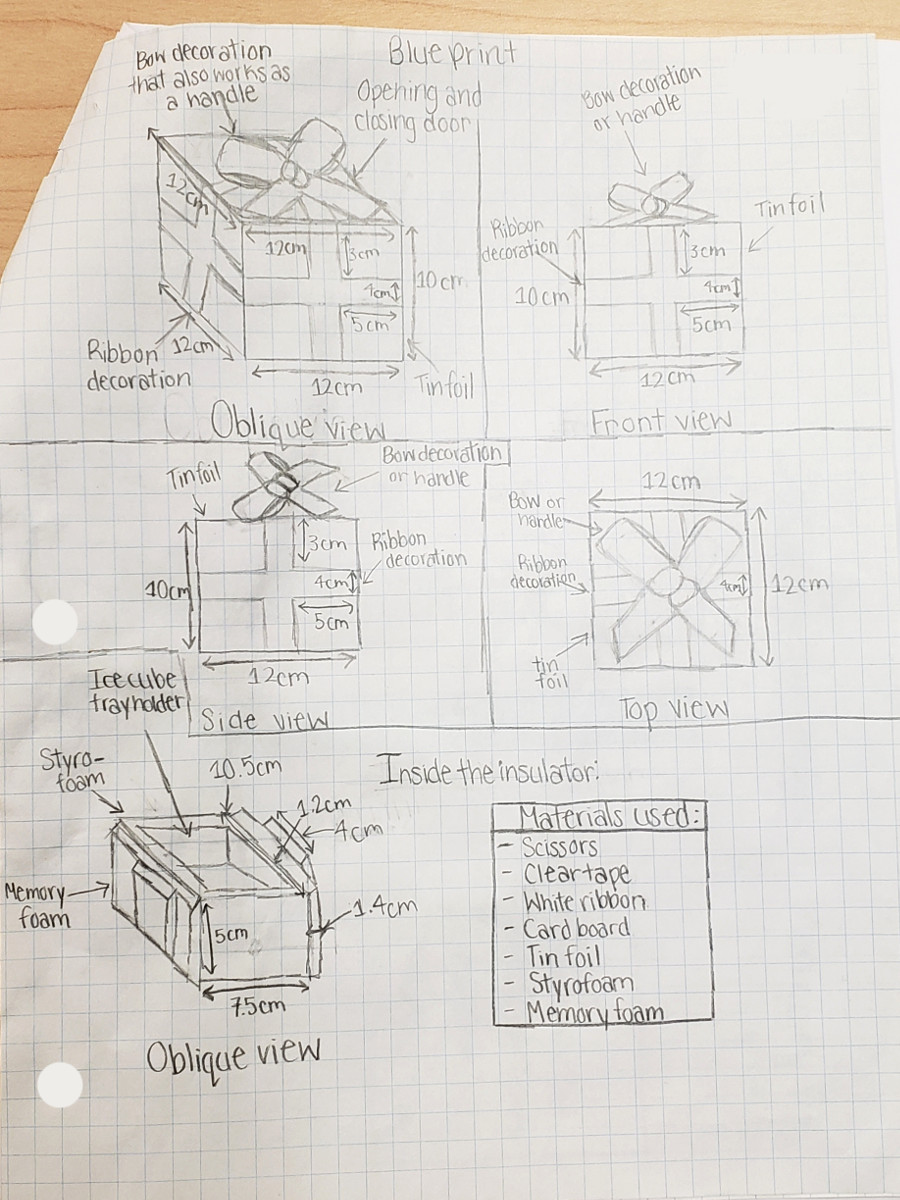 Blueprint
Bow decoration
that also works as
a handle
Opening and
closing door
12cm
12cm
3cm
4cm
5cm
10cm
12cm
12cm
Ribbon
decoration
Tinfoil
Oblique view
Bow decoration
or handle
Tinfoil
Ribbon
decoration
3cm
10cm
4cm
5cm
12cm
Front view
Tinfoil
Bow decoration
or handle
3cm
Ribbon
decoration
10cm
4cm
5cm
12cm
Side view
12cm
Bow or
handle
Ribbon
decoration
4cm
12cm
tin
foil
Top view
Ice cube
tray holder
Styro-
foam
10.5cm
Inside the insulator:
12cm
4cm
Memory
foam
1.4cm
5cm
7.5cm
Oblique view
Materials used:
- Scissors
- Clear tape
- White ribbon
- Card board
- Tin foil
- Styrofoam
- Memory foam